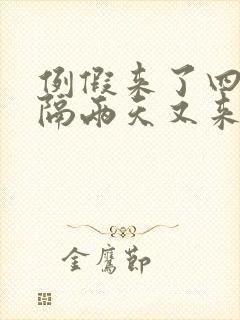 例假来了四
隔两天又来
金鹰节